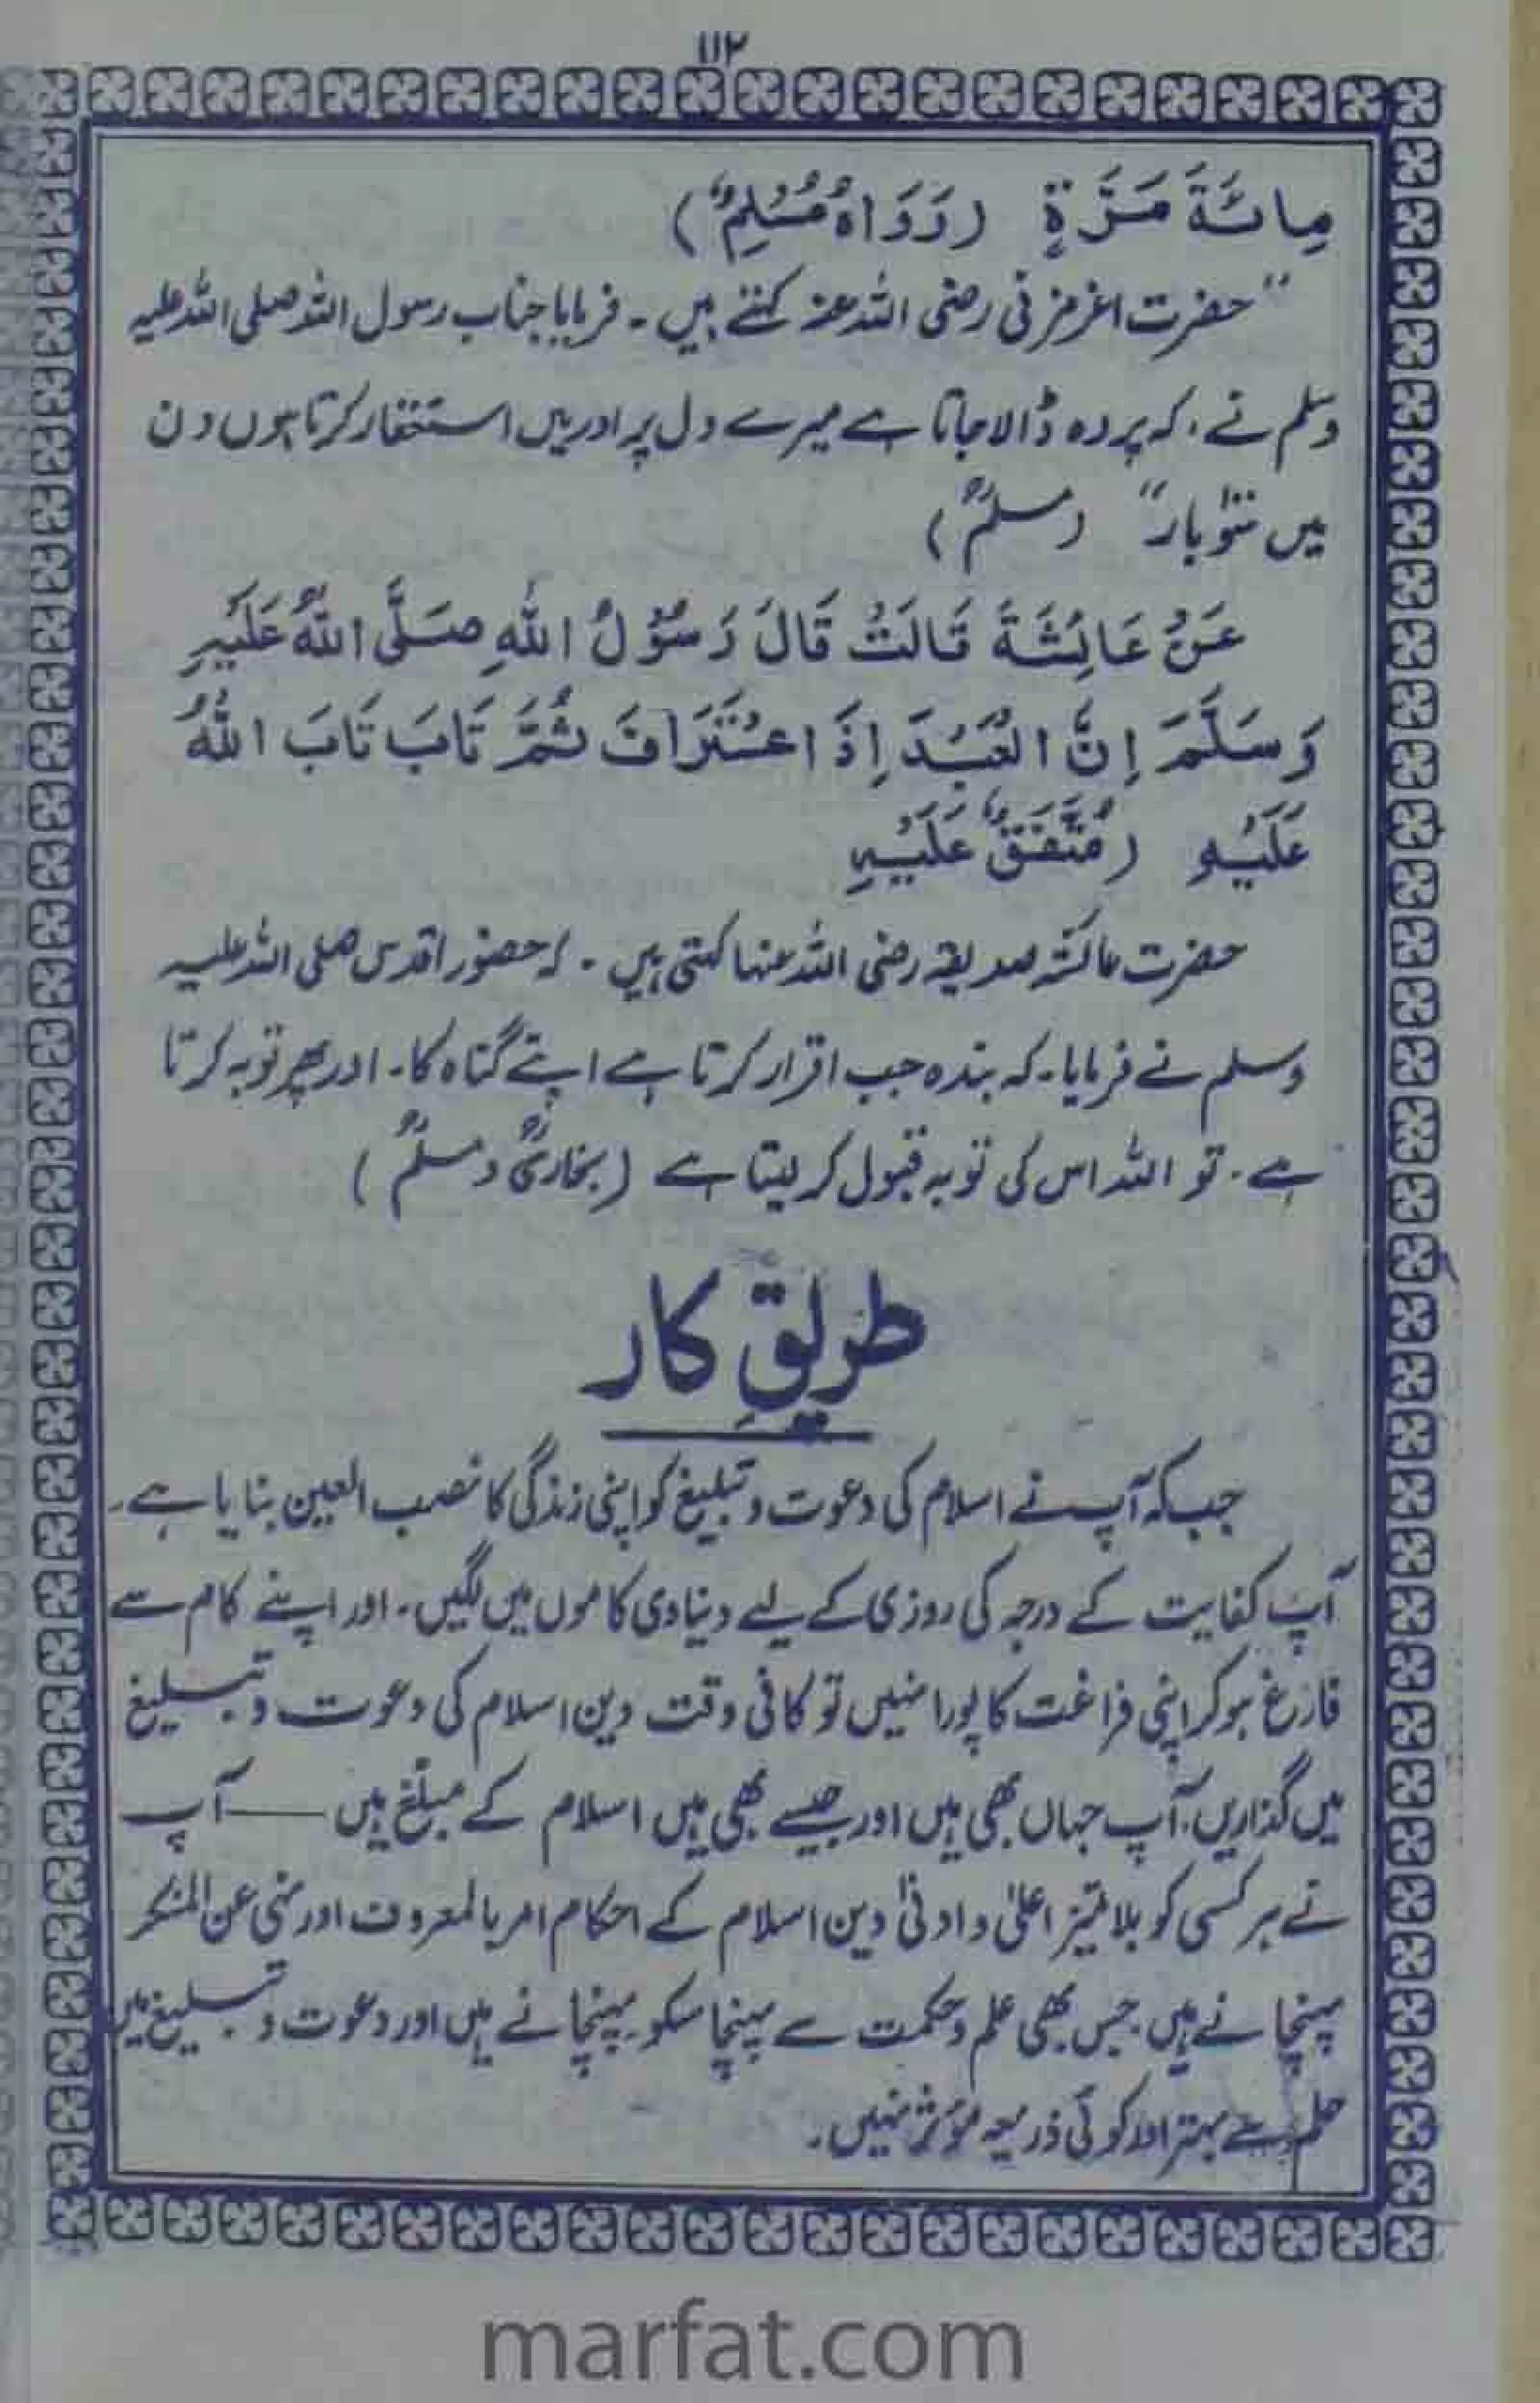 ۱۱۲
مِائَةَ مَرَّةٍ (رَوَاهُ مُسْلِمٌ)
"حضرت اغر مزنی رضی اللہ عنہ کہتے ہیں ۔ فرمایا جناب رسول اللہ صلی اللہ علیہ
وسلم نے، کہ پردہ ڈالا جاتا ہے میرے دل پر اور میں استغفار کرتا ہوں دن
میں سَو بار" (مسلمؒ)
عَنْ عَائِشَةَ قَالَتْ قَالَ رَسُوْلُ اللهِ صَلَّى اللهُ عَلَيْهِ
وَسَلَّمَ اِنَّ الْعَبْدَ اِذَا اعْتَرَافَ ثُمَّ تَابَ تَابَ اللهُ
عَلَيْهِ (مُتَّفَقٌ عَلَيْهِ
حضرت عائشہ صدیقہ رضی اللہ عنہا کہتی ہیں ۔ کہ حضور اقدس صلی اللہ علیہ
وسلم نے فرمایا۔ کہ بندہ جب اقرار کرتا ہے اپنے گناہ کا۔ اور پھر توبہ کرتا
ہے ۔ تو اللہ اس کی توبہ قبول کر لیتا ہے (بخاریؒ و مسلمؒ)
طریقِ کار
جب کہ آپ نے اسلام کی دعوت و تبلیغ کو اپنی زندگی کا نصب العین بنایا ہے۔
آپ کفایت کے درجہ کی روزی کے لیے دنیاوی کاموں میں لگیں۔ اور اپنے کام سے
فارغ ہو کر اپنی فراغت کا پورا نہیں تو کافی وقت دین اسلام کی دعوت و تبلیغ
میں گذاریں۔ آپ جہاں بھی ہیں اور جیسے بھی ہیں اسلام کے مبلّغ ہیں ——— آپ
نے ہر کسی کو بلا تمیز اعلیٰ و ادنیٰ دین اسلام کے احکام امر بالمعروف اور نہی عن المنکر
پہنچانے ہیں۔ جس بھی علم و حکمت سے پہنچا سکو۔ پہنچانے ہیں اور دعوت و تبلیغ میں
حلم سے بہتر اور کوئی ذریعہ مؤثر نہیں۔
marfat.com